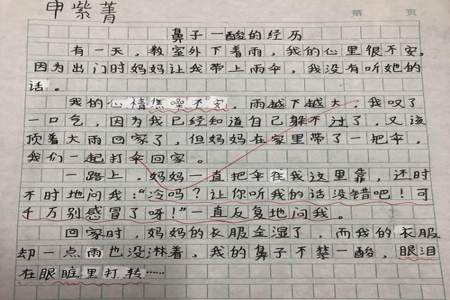 甲紫菁
第 页
鼻子一酸的经历
有一天，教室外下着雨，我的心里很不安。
因为出门时妈妈让我带上雨伞，我没有听她的
话。
我的心情忐忑不安，雨越下越大，我叹了
一口气，因为我已经知道自己躲不过了，又该
顶着大雨回家了，但妈妈在家里带了一把伞，
我们一起打伞回家。
一路上，妈妈一直把伞往我这里靠，还时
不时地问我："冷吗？让你听我的话没错吧！可
千万别感冒了呀！"一直反复地问我。
回家时，妈妈的衣服全湿了，而我的衣服
却一点雨也没淋着，我的鼻子不禁一酸，眼泪
在眼眶里打转……